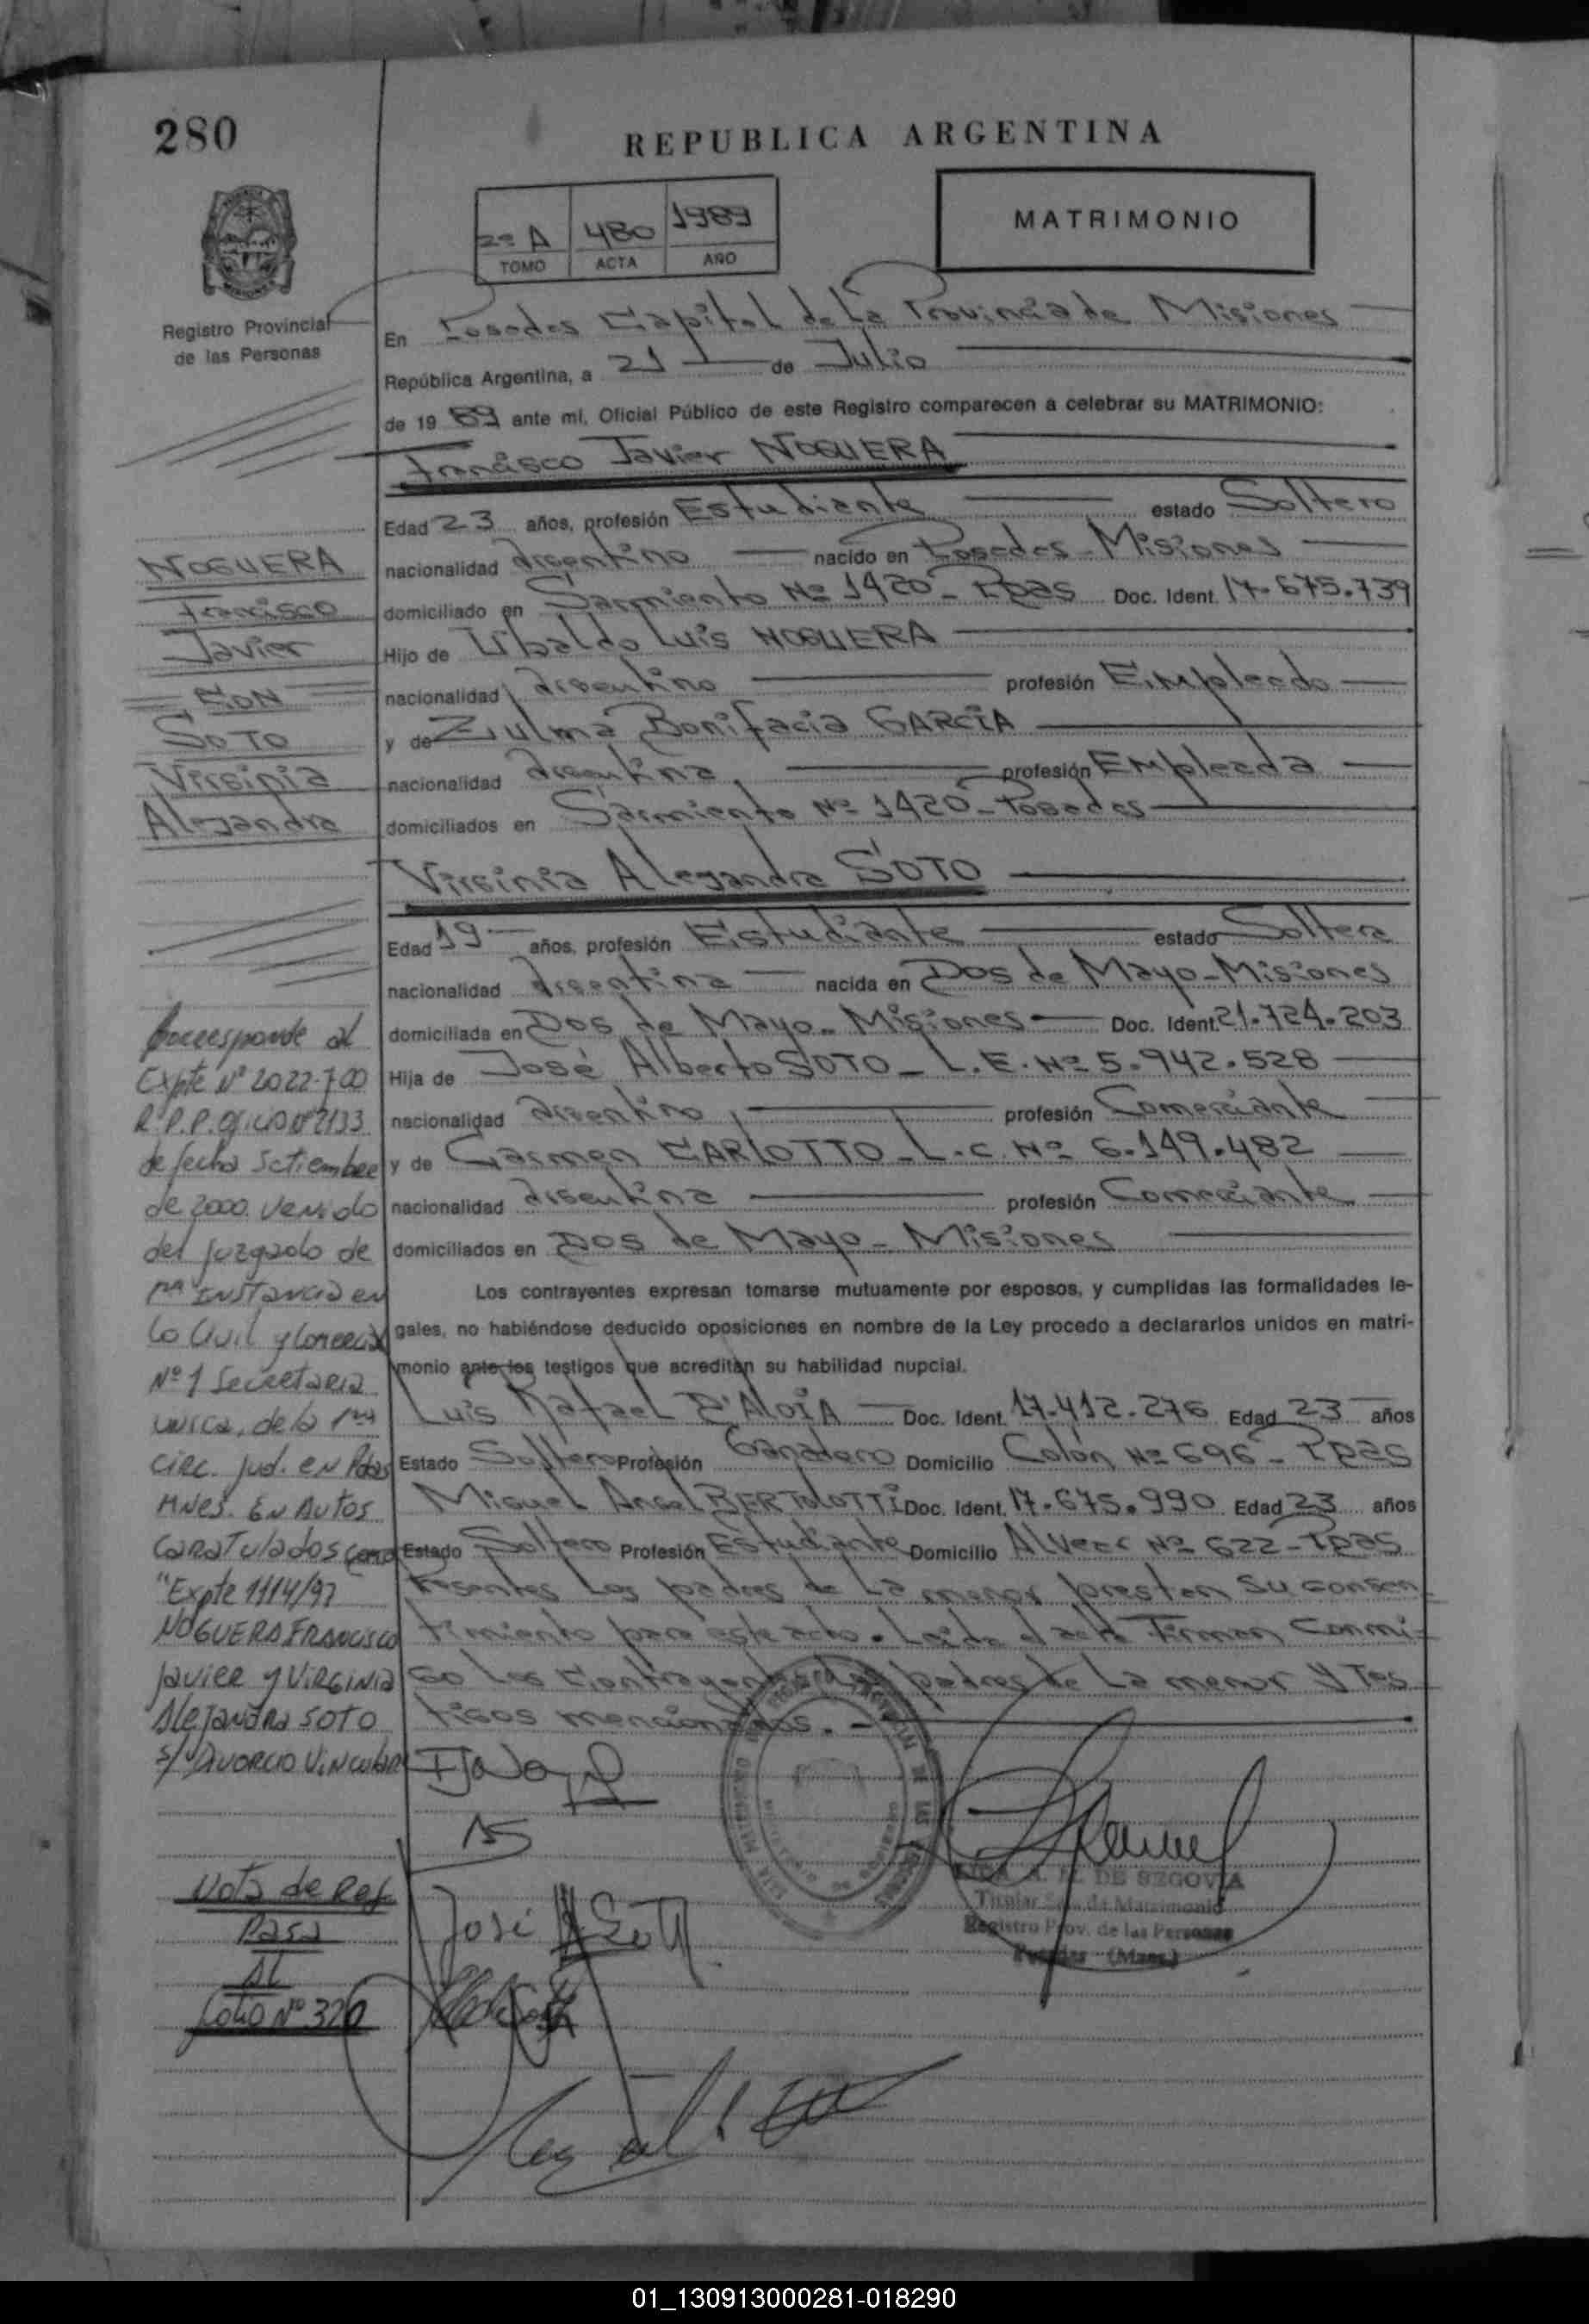 280
REPUBLICA ARGENTINA
2º A 480 1989
TOMO ACTA AÑO
MATRIMONIO
Registro Provincial
de las Personas
En Posadas Capital de La Provincia de Misiones
República Argentina, a 21 de Julio
de 19 89 ante mí, Oficial Público de este Registro comparecen a celebrar su MATRIMONIO:
Francisco Javier NOGUERA
Edad 23 años, profesión Estudiante estado Soltero
nacionalidad Argentino nacido en Posadas-Misiones
domiciliado en Sarmiento Nº 1420-Pdas Doc. Ident. 17.675.739
Hijo de Ubaldo Luis NOGUERA
nacionalidad Argentino profesión Empleado
y de Zulma Bonifacia GARCIA
nacionalidad Argentina profesión Empleada
domiciliados en Sarmiento Nº 1420-Posadas
Virginia Alejandra SOTO
Edad 19 años, profesión Estudiante estado Soltera
nacionalidad Argentina nacida en Dos de Mayo-Misiones
domiciliada en Dos de Mayo-Misiones Doc. Ident. 21.724.203
Hija de José Alberto SOTO-L.E. Nº 5.942.528
nacionalidad Argentino profesión Comerciante
y de Carmen CARLOTTO-L.C. Nº 6.149.482
nacionalidad Argentina profesión Comerciante
domiciliados en Dos de Mayo-Misiones
Los contrayentes expresan tomarse mutuamente por esposos, y cumplidas las formalidades le-
gales, no habiéndose deducido oposiciones en nombre de la Ley procedo a declararlos unidos en matri-
monio ante los testigos que acreditan su habilidad nupcial.
Luis Rafael D'ALOIA Doc. Ident. 17.412.276 Edad 23 años
Estado Soltero Profesión Ganadero Domicilio Colón Nº 696-Pdas
Miguel Angel BERTOLOTTI Doc. Ident. 17.675.990 Edad 23 años
Estado Soltero Profesión Estudiante Domicilio Alvear Nº 622-Pdas
Presentes Los padres de La menor prestan su consen
timiento para este acto. Leida el acta Firman Conmi-
go Los Contrayentes, padres de La menor y Tes
tigos mencionados.-
José A Soto
DE SEGOVIA
Titular Sec. de Matrimonio
Registro Prov. de las Personas
Posadas (Mnes.)
NOGUERA
Francisco
Javier
CON
SOTO
Virginia
Alejandra
Corresponde al
Expte Nº 2022-7-00
R.P.P. Oficio Nº 2133
de fecha Setiembre
de 2000. Venido
del juzgado de
1ra Instancia en
lo Civil y Comercial
Nº 1 Secretaria
unica, de la 1ra
Circ. Jud. en Pdas
Mnes. En Autos
Caratulados como
"Expte 1114/97
NOGUERA FRANCISCO
Javier y VIRGINIA
Alejandra SOTO
s/ Divorcio Vincular
Nota de Ref
Pasa
Al
folio Nº 320
01_130913000281-018290